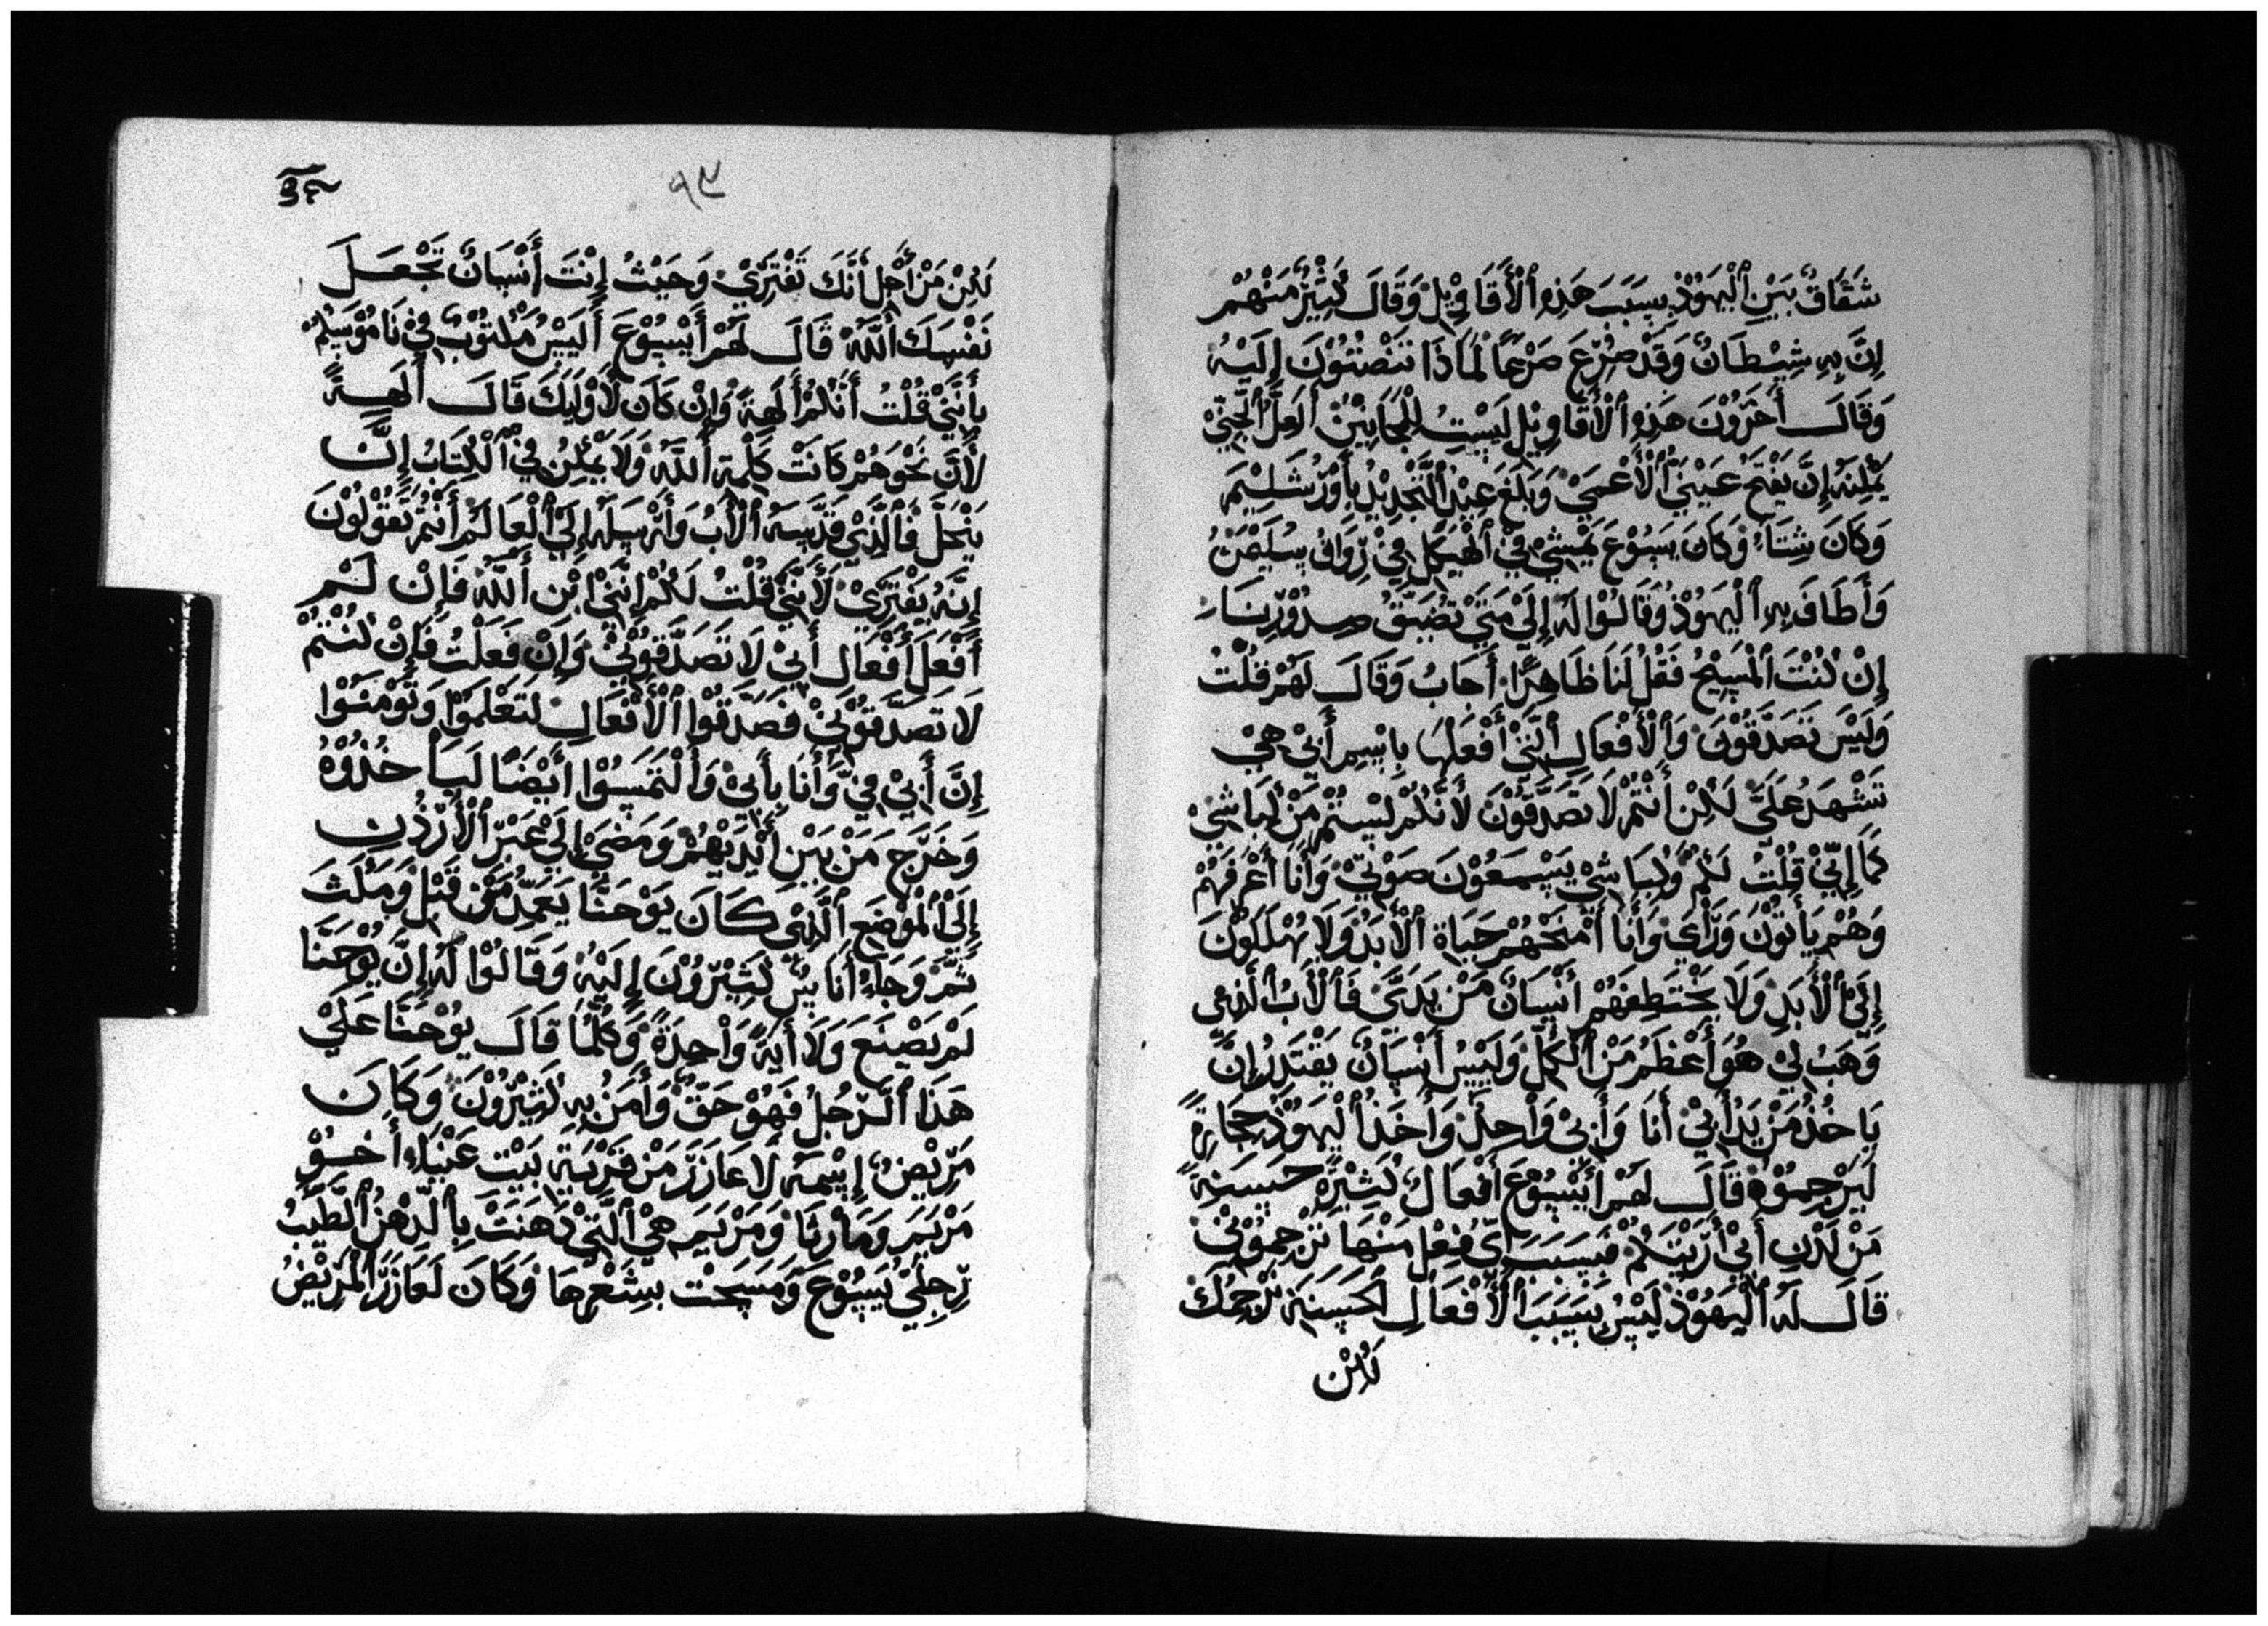 شَقَاقٌ بَيْنَ ٱلْيَهُوْذِ بِسَبَبَ هَذِهِ ٱلْأَقَاوِيْلْ وَقَالَ كَثِيْرٌ مَنْهُمْ
اِنَّ بِهِ شِيْطَانٌ وَقَدْ صُرِعَ صَرْعًا لَمَاذَا تَنْصَتُوْنَ إِلَيْهِ
وَقَالَ أَخَرُوْنَ هَذِهِ ٱلْأَقَاوِيْلِ لَيْسَتِ لِلْمَجَانِيْنْ اَلَعَلَّ ٱلْجِنِّيْ
يَمْكِنَهُ إِنَّ يَفْتَحَ عَيْنَيْ ٱلْأَعْمَيْ وَبَلَغَ عِيْدُ ٱلتَّجْدِيْدِ بِأَوْرُشَلِيْمَ
وَكَانَ شِتَاءٌ وَكَانَ يَسُوْعَ يَمْشِيْ فِيْ ٱلْهَيْكَلِ فِيْ رِوَاقِ سُلَيْمَنْ
وَأَطَافَ بِهِ ٱلْيَهُوْذْ وَقَالُوْا لَهُ إِلَيْ مَتَيْ تُضَيِّقُ صِدُوْرِنَا
إِنْ كُنْتَ ٱلْمَسِيْحُ فَقُلْ لَنَا ظَاهِرًا أَجَابُ وَقَالَ لَهُمْ قُلْتُ
وَلَيْسَ تَصَدَّقُوْنَ وَٱلْأَفْعَالِ ٱلَّتِيْ أَفْعَلُهَا بِاسْمِ أَبِيْ هِيْ
تَشْهَدُ عَلَيَّ لَكِنْ أَنْتُمْ لَا تَصَدَّقُوْنَ لَأَنَّكُمْ لَسْتُمْ مَنْ كِبَاشِيْ
كَمَا إِنِّيْ قُلْتُ لَكُمْ وَكِبَاشِيْ يَسْمَعُوْنَ صَوْتِيْ وَأَنَا أَعْرِفَهُمْ
وَهُمْ يَأتُوْنَ وَرَآءِيْ وَأَنَا أَمْنَحْهُمْ حَيَاةِ ٱلْأَبَدْ وَلَا يُهْلَكُوْنَ
إِلَيْ ٱلْأَبَدِ وَلَا يَخْتَطِفَهُمْ أَنْسَانٌ مَنْ يَدَيَّ فَٱلْأَبُ ٱلَّذِيْ
وَهَبُ لِيْ هُوَ أَعْظَمُ مَنْ ٱلْكِلِّ وَلَيْسُ أَنْسَانٌ يَقْتَدِرُ إِنَّ
يَاخُذُ مَنْ يَدُ أَبِيْ أَنَا وَأَبِيْ وَاْحِدْ وَأَخَذَ ٱلْيَهُوْذُ حِجَارَةً
لَيَرْجِمُوْهُ قَالَ لَهُمْ أَيْسُوْعَ أَفْعَالٌ كَثِيْرَةٍ حَسَنَةً
مَنْ لَدْنِ أَبِيْ أَرَيْتَكُمْ فَبِسَبَبِ أَيِّ فِعْلِ مَنْهَا تَرْجِمُوْنِيْ
قَالَ لَهُ ٱلْيَهُوْذْ لَيْسُ بِسَبَبَ ٱلْأَفْعَالِ ٱلْحَسَنَةِ نَرْجِمُكَ
لَكِنْ
٩٣
لَكِنْ مَنْ أَجْلِ أَنَّكَ تَفْتَرِيْ وَحَيْثُ إِنْتَ أَنْسَانٌ تَجْعَلَ
نَفْسِكَ ٱللَّهْ قَالَ لَهُمْ أَيْسُوْعَ أَلَيْسُ مَكْتُوْبٌ فِيْ نَامُوْسَكُمْ
بِأَنَّنِيْ قُلْتُ أَنَّكُمْ أَلَهِةٌ وَإِنْ كَانَ لَأَوْلَيِكَ قَالَ أَلَهِةً
لَأَنَّ نَحْوَهُمْ كَانَتْ كَلِمَةِ ٱللَّهْ وَلَا يَمْكِنُ فِيْ ٱلْكِتَابُ إِنَّ
يَنْحَلَّ فَٱلَّذِيْ قَدَّسَهُ ٱلْأَبُ وَأَرْسَلَهُ إِلَيْ ٱلْعَالَمْ أَنْتُمْ تَقُوْلُوْنَ
إِنَّهُ يَفْتَرِيْ لَأَنَّنِيْ قُلْتُ لَكُمْ إِنَّنِيْ اِبْنِ ٱللَّهْ فَإِنْ لَمْ
أَفْعَلَ أَفْعَالِ أَبِيْ لَا تَصَدَّقُوْنِيْ وَإِنْ فَعَلْتُ فَإِنْ كُنْتُمْ
لَا تَصَدَّقُوْنِيْ فَصَدِّقُوْا ٱلْأَفْعَالِ لَتَعْلَمُوْا وَتُوْمِنُوْا
إِنَّ أَبِيْ فِيَّ وَأَنَا بِأَبِيْ وَأَلْتَمَسُوْا أَيْضًا لَيَأْخُذُوْهُ
وَخَرَجَ مَنْ بَيْنِ أَيْدَيْهُمْ وَمَضَيْ إِلَيْ عَبْرِ ٱلْأَرْذُنِ
إِلَيْ ٱلْمَوْضِعِ ٱلَّذِيْ كَانَ يَوْحَنَّا يَعَمِّدُ مَنْ قَبْلْ وَمَكَثَ
ثَمَّ وَجَاءَ أَنَاسٌ كَثِيْرُوْنَ إِلَيْهِ وَقَالُوْا لَهُ إِنَّ يُوْحَنَّا
لَمْ يَصْنَعَ وَلَا أَيَةً وَاْحِدَةً وَكُلَّمَا قَالَ يُوْحَنَّا عَلَيْ
هَذَا ٱلْرَجُلُ فَهُوْ حَقٌّ وَأَمَنُ بِهِ كَثِيْرُوْنَ وَكَانَ
مَرِيْضٌ إِسْمَهُ لَاعَازَرَ مَنْ قَرْيَةِ بَيْتِ عَنْيَاءِ أَخُوْ
مَرْيَمَ وَمَاْرْثَا وَمَرْيَمِ هِيْ ٱلَّتِيْ دَهَنَتْ بِٱلْدَّهْنُ ٱلطَّيِّبُ
رِجِلَيْ يَسُوْعَ وَمَسَحَتْ بِشَعْرِهَا وَكَانَ لَعَازَرَ ٱلْمَرِيْضُ